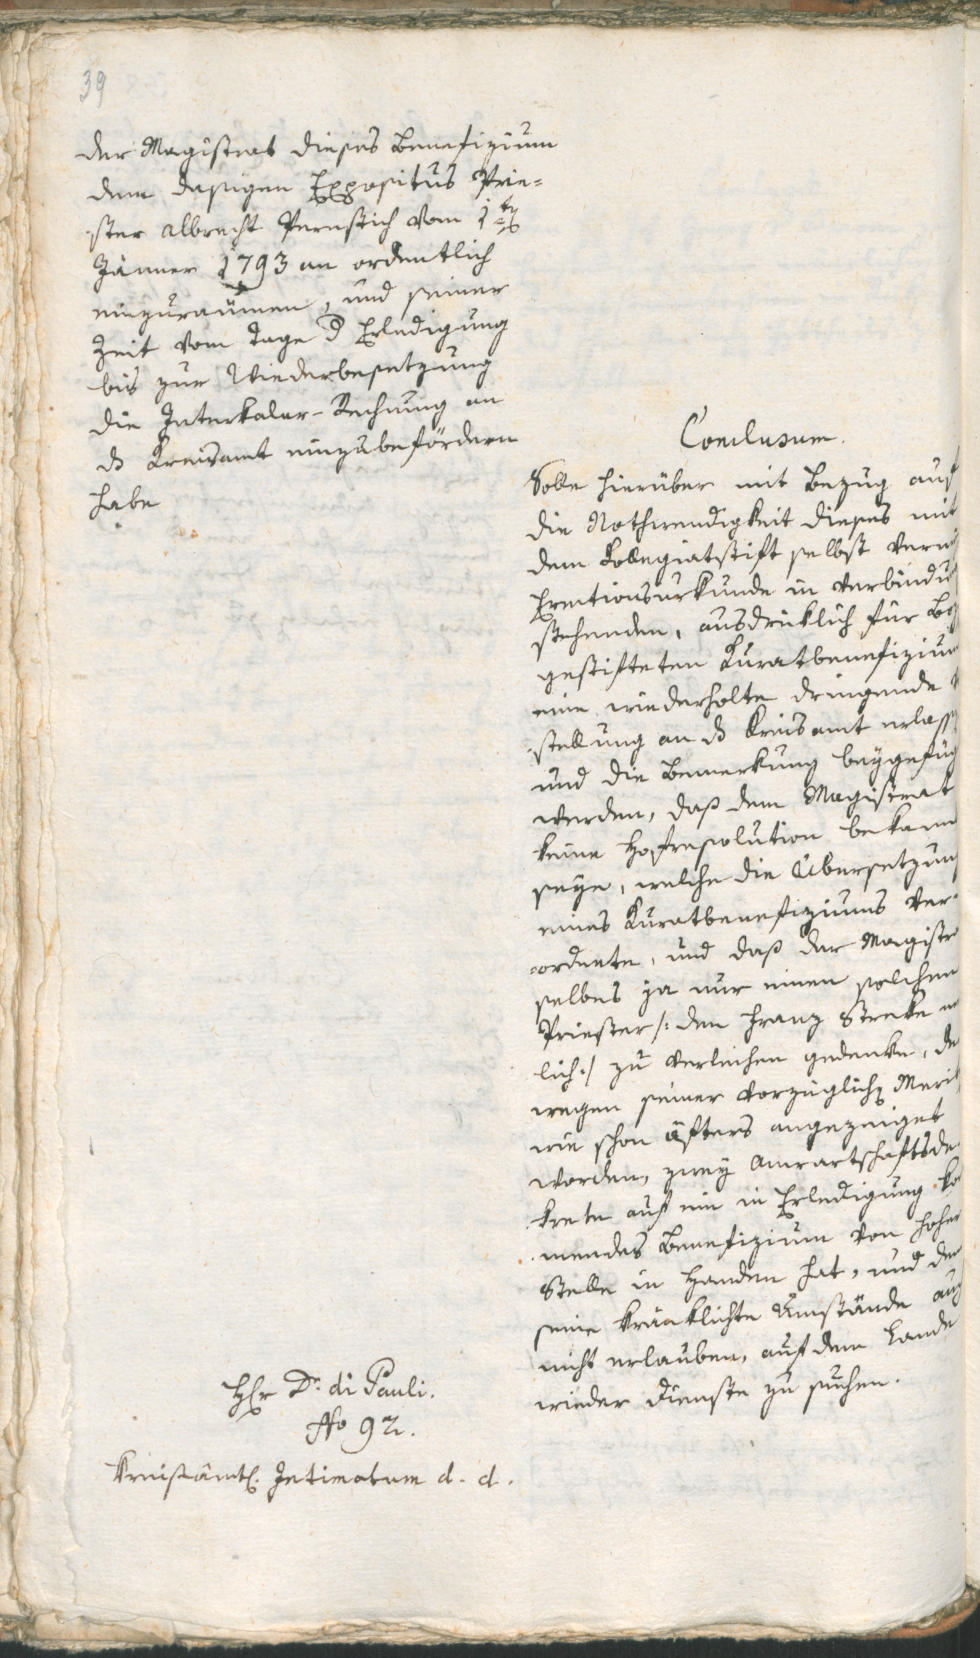 39
der Magistrat dieses Benefizium
dem dasigen Expositus Prie=
ster Albrecht Pernstich vom 1ten
Jänner 1793 an ordentlich
einzuraümen, und seiner
Zeit vom Tage d Erledigung
bis zur Wiederbesetzung
die Interkalar-Rechnung an
ds Kreisamt einzubefördern
habe
Hr Dr. di Pauli.
No 92.
Kreisämtl. Intimatum d. d.
Conclusum.
Solle hierüber mit Bezug auf
die Nothwendigkeit dieses mit
dem Kollegiatstift selbst
Erectionsurkunde in Verbindu
stehenden, ausdrücklich für Boz
gestifteten Kuratbenefizium
eine wiederholte dringende
stellung an ds Kreisamt erlass
und die Bemerkung beygefüg
werden, daß dem Magistrat
keine Hofresolution bekann
seye, welche die Übersetzung
eines Kuratbenefiziums ver=
ordnete, und daß der Magistra
selbes ja nur einen solchen
Priester /: den Franz Strebe
lich :/ zu verleihen gedenke, de
wegen seiner vorzüglichen Merit
wie schon öfters angezeiget
worden, zwey Anwartschaftsde
krete auf ein in Erledigung ko
mendes Benefizium von hoher
Stelle in Handen hat, und dem
seine kränklichte Umstände auch
nicht erlauben, auf dem Lande
wieder Dienste zu suchen.